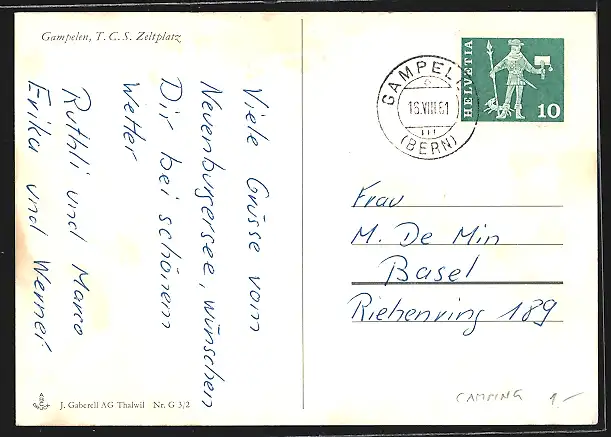 Gampelen, T. C. S. Zeltplatz
Viele Grüsse vom
Neuenburgersee, wünschen
Dir bei schönem
Wetter
Ruthli und Marco
Erika und Werner
J. Gaberell AG Thalwil Nr. G 3/2
GAMPELE
16.VIII.61
III
(BERN)
HELVETIA
10
Frau
M. De Min
Basel
Riehenring 189
CAMPING 1.–